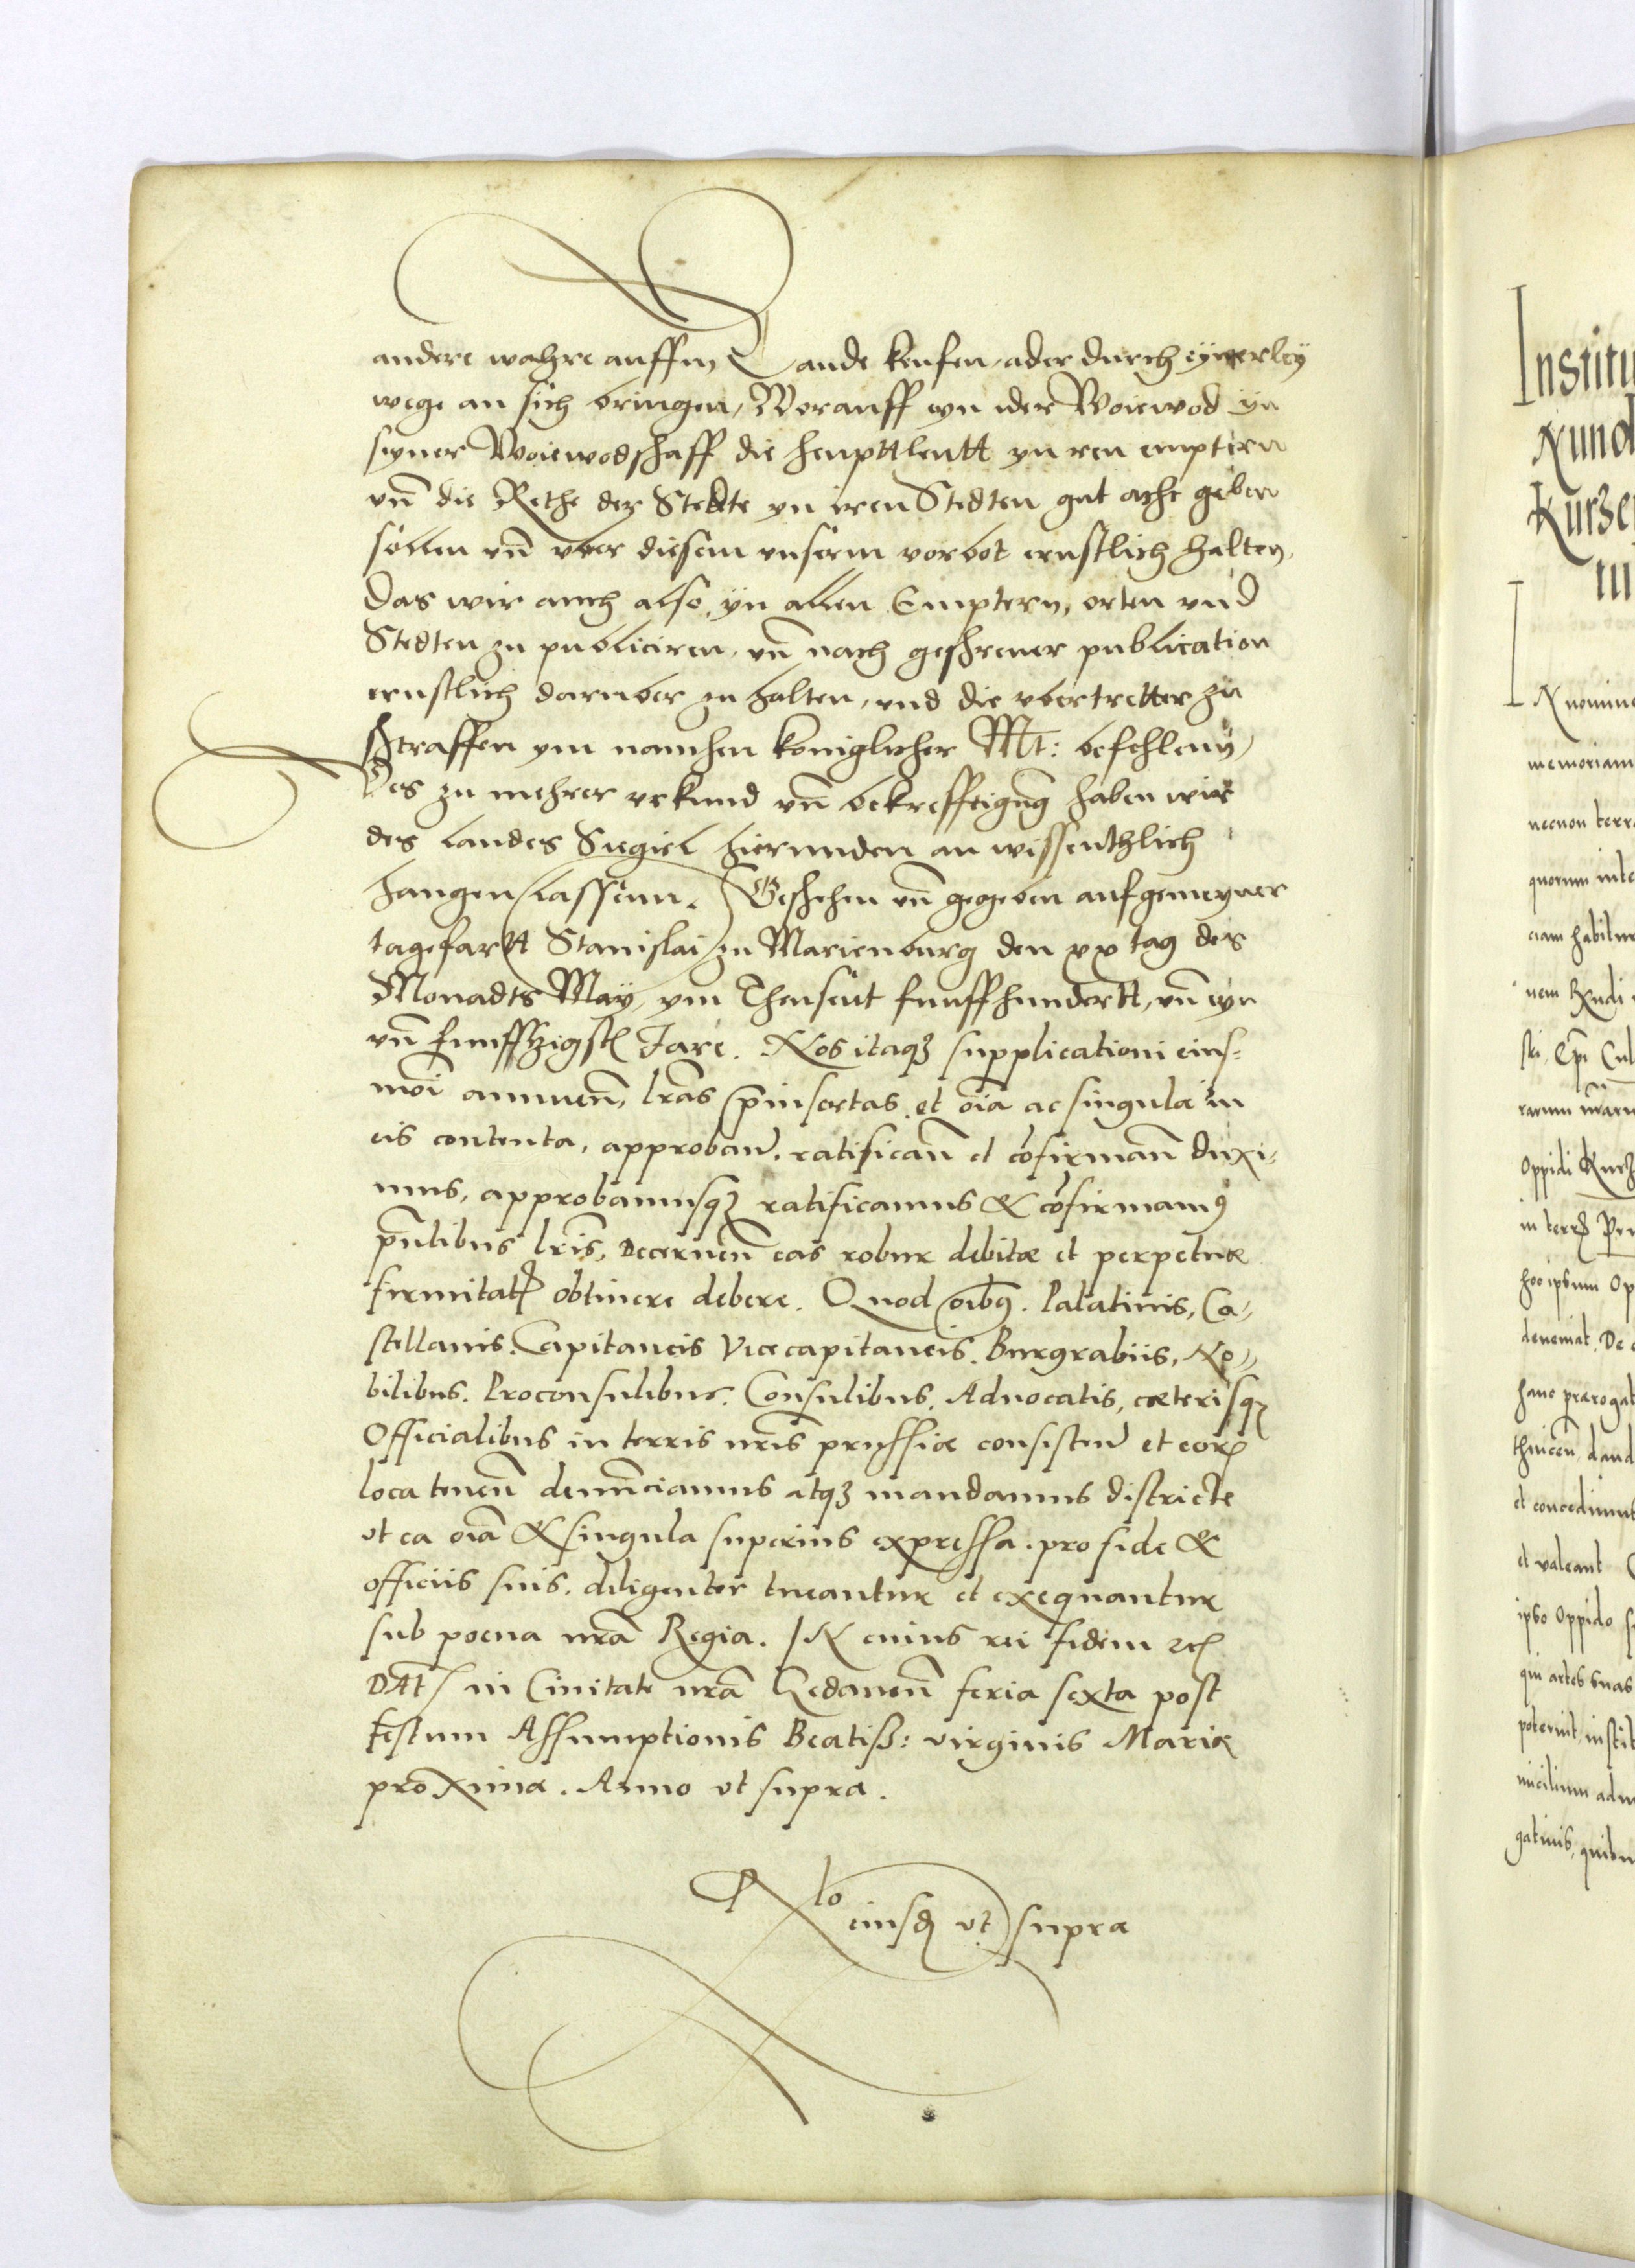 andere wahre auffm Lande keufen, ader durch eynerley
wege an sich bringen, Worauff eyn ider Woiewod yn
seyner Woiewodschaff die heuptleutt yn ren emptern
vn̄ die Rethe der Stedte yn iren Stedten gut acht geben
sollen vn̄ vber diesem vnserm vorbot ernstlich halten,
Das wir auch also, yn allen Emptern, orten vnd
Stedten zu publiciren, vn̄ nach geschener publication
ernstlich daruber zu halten, vnd die vbertretter zu
straffen ym namhen koniglicher Mt: befehleny,
Des zu mehrer vrkund vn̄ bekrefftigūg haben wir
des Landes Siegiel hierunden an wissenthlich
hangen lassenn. Geschehen vn̄ gegeben auf gemeyner
tagefartt Stanislai zu Marienburg den xx tag des
Monadts May, ym Thausent funffhundertt, vn̄ eyn
vn̄ funffzigstē Jare. Nos itaqꝫ supplicationi eius=
moī annuen̄, lr̄as p̄insertas, et oīa ac singula in
eis contenta, approban̄. ratifican̄ et cōfirman̄ duxi,
mus, approbamusqꝫ ratificamus & cōfirmamꝰ
pn̄tibus lr̄is, Decernen̄ eas robur debitæ et perpetuæ
firmitatꝭ obtinere debere. Quod oībꝰ. Palatinis, Ca,
stellanis. Capitaneis Vicecapitaneis. Burgrabiis, No,,
bilibus. Proconsulibus. Consulibus. Aduocatis, cæterisqꝫ
Officialibus in terris nr̄is prussiæ consisten̄ et eorꝝ
loca tenen̄ denūciamus atqꝫ mandamus districte
vt ea oīa & singula superius expressa. pro fide &
officiis suis. diligenter tueantur et exequantur
sub poena nr̄a Regia. IN cuius rei fidem ꝛcꝭ
DAtꝭ in Ciuitate nr̄a Gedanen̄ feria sexta post
festum Assumptionis Beatiß: virginis Mariæ
proxima. Anno vt supra.
Rl̄o
eiusdꝫ vt supra
Institu
Nund
Kurze
tu
IN nomine
memoriam
necnon terra
quorum inte
ciam habitur
nem
Cul
Oppidi Kurz
in terrꝭ Pru
hoc ipsum Op
deueniat. De
hanc prærogat
dand
et concedimus
et valeant
ipso Oppido
qui artes suas
poterint, instit
micilium adm
gatinis, quibu